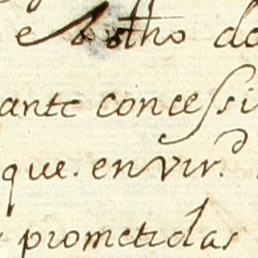 e
ante concessi
que. en vir.^d
prometidas